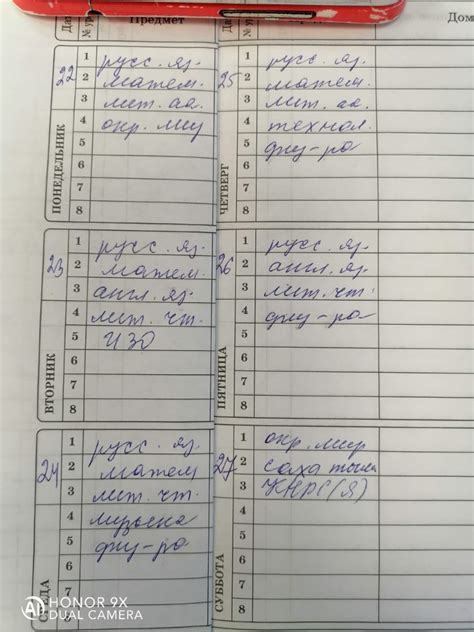 Да
№ ур
Предмет
Да
№ ур
Дом
22
ПОНЕДЕЛЬНИК
1 русс. яз.
2 матем.
3 лит. аа.
4 окр. миу
5
6
7
8
23
ВТОРНИК
1 русс. яз.
2 матем.
3 англ. яз.
4 лит. чт.
5 ИЗО
6
7
8
24
СРЕДА
1 русс. яз.
2 матем
3 лит. чт.
4 музыка
5 физ-ра
6
7
8
25
ЧЕТВЕРГ
1 русс. яз.
2 матем.
3 лит. аа.
4 технол.
5 физ-ра
6
7
8
26
ПЯТНИЦА
1 русс. яз.
2 англ. яз.
3 лит. чт.
4 физ-ра
5
6
7
8
27
СУББОТА
1 окр. мир
2 саха тыла
3 КНРС(Я)
4
5
6
7
8
AI HONOR 9X
DUAL CAMERA